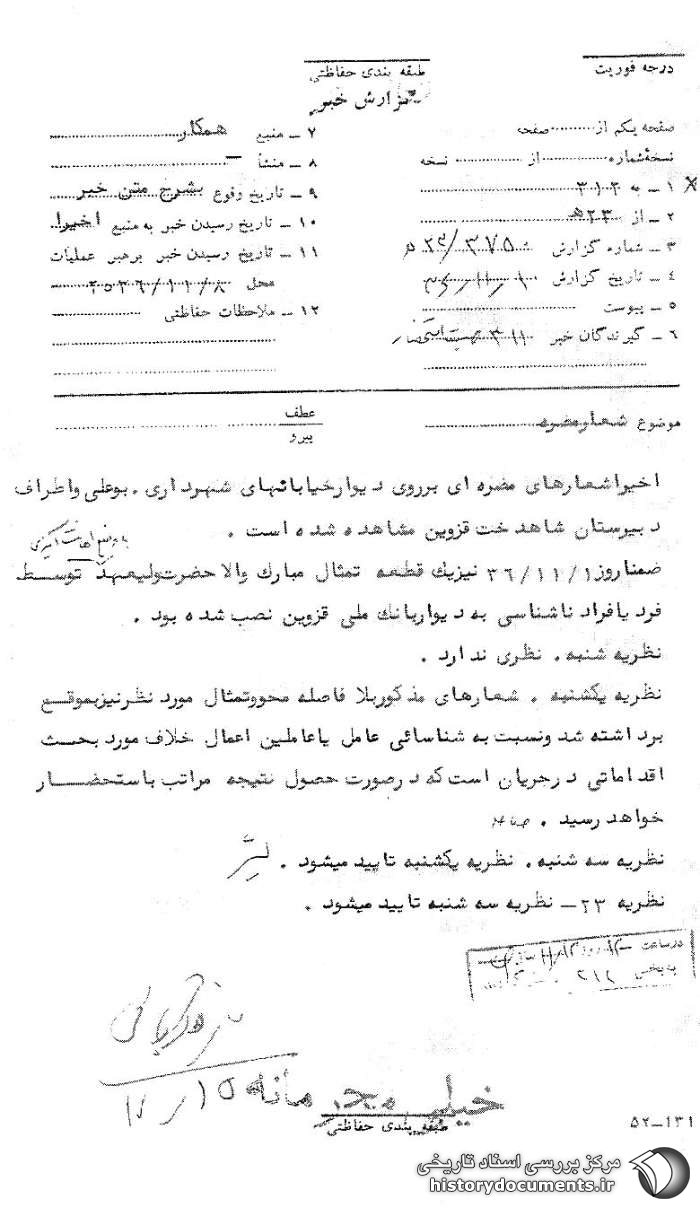 درجه فوریت
طبقه بندی حفاظتی
گزارش خبر
صفحه یکم از ........ صفحه
نسخهٔ شماره ........ از ........ نسخه
۱ ـ به ۳۱۲
۲ ـ از ۲۳ هـ
۳ ـ شماره گزارش
۴ ـ تاریخ گزارش
۵ ـ پیوست
۶ ـ گیرندگان خبر ۳۱۱
۷ ـ منبع همکار
۸ ـ منشأ ـ
۹ ـ تاریخ وقوع بشرح متن خبر
۱۰ ـ تاریخ رسیدن خبر به منبع اخیرا
۱۱ ـ تاریخ رسیدن خبر برهبر عملیات
محل ۲۵۳۶/۱۱/۸
۱۲ ـ ملاحظات حفاظتی
موضوع شعار مضره
عطف
پیرو
اخیرا شعارهای مضره ای برروی دیوار خیابانهای شهرداری . بوعلی واطراف
دبیرستان شاهدخت قزوین مشاهده شده است .
با وضع اهانت آمیزی
ضمنا روز ۳۶/۱۱/۱ نیزیک قطعه تمثال مبارک والاحضرت ولیعهد توسط
فرد یا افراد ناشناسی به دیوار بانک ملی قزوین نصب شده بود .
نظریه شنبه . نظری ندارد .
نظریه یکشنبه . شعارهای مذکور بلا فاصله محو و تمثال مورد نظر نیز بموقع
برداشته شد ونسبت به شناسائی عامل یا عاملین اعمال خلاف مورد بحث
اقداماتی درجریان است که درصورت حصول نتیجه مراتب باستحضار
خواهد رسید .
نظریه سه شنبه . نظریه یکشنبه تایید میشود .
نظریه ۲۳ ـ نظریه سه شنبه تایید میشود .
در ساعت
به بخش ۳۱۲
خیلی محرمانه
طبقه بندی حفاظتی
۵۲ـ۱۳۱
مرکز بررسی اسناد تاریخی
historydocuments.ir